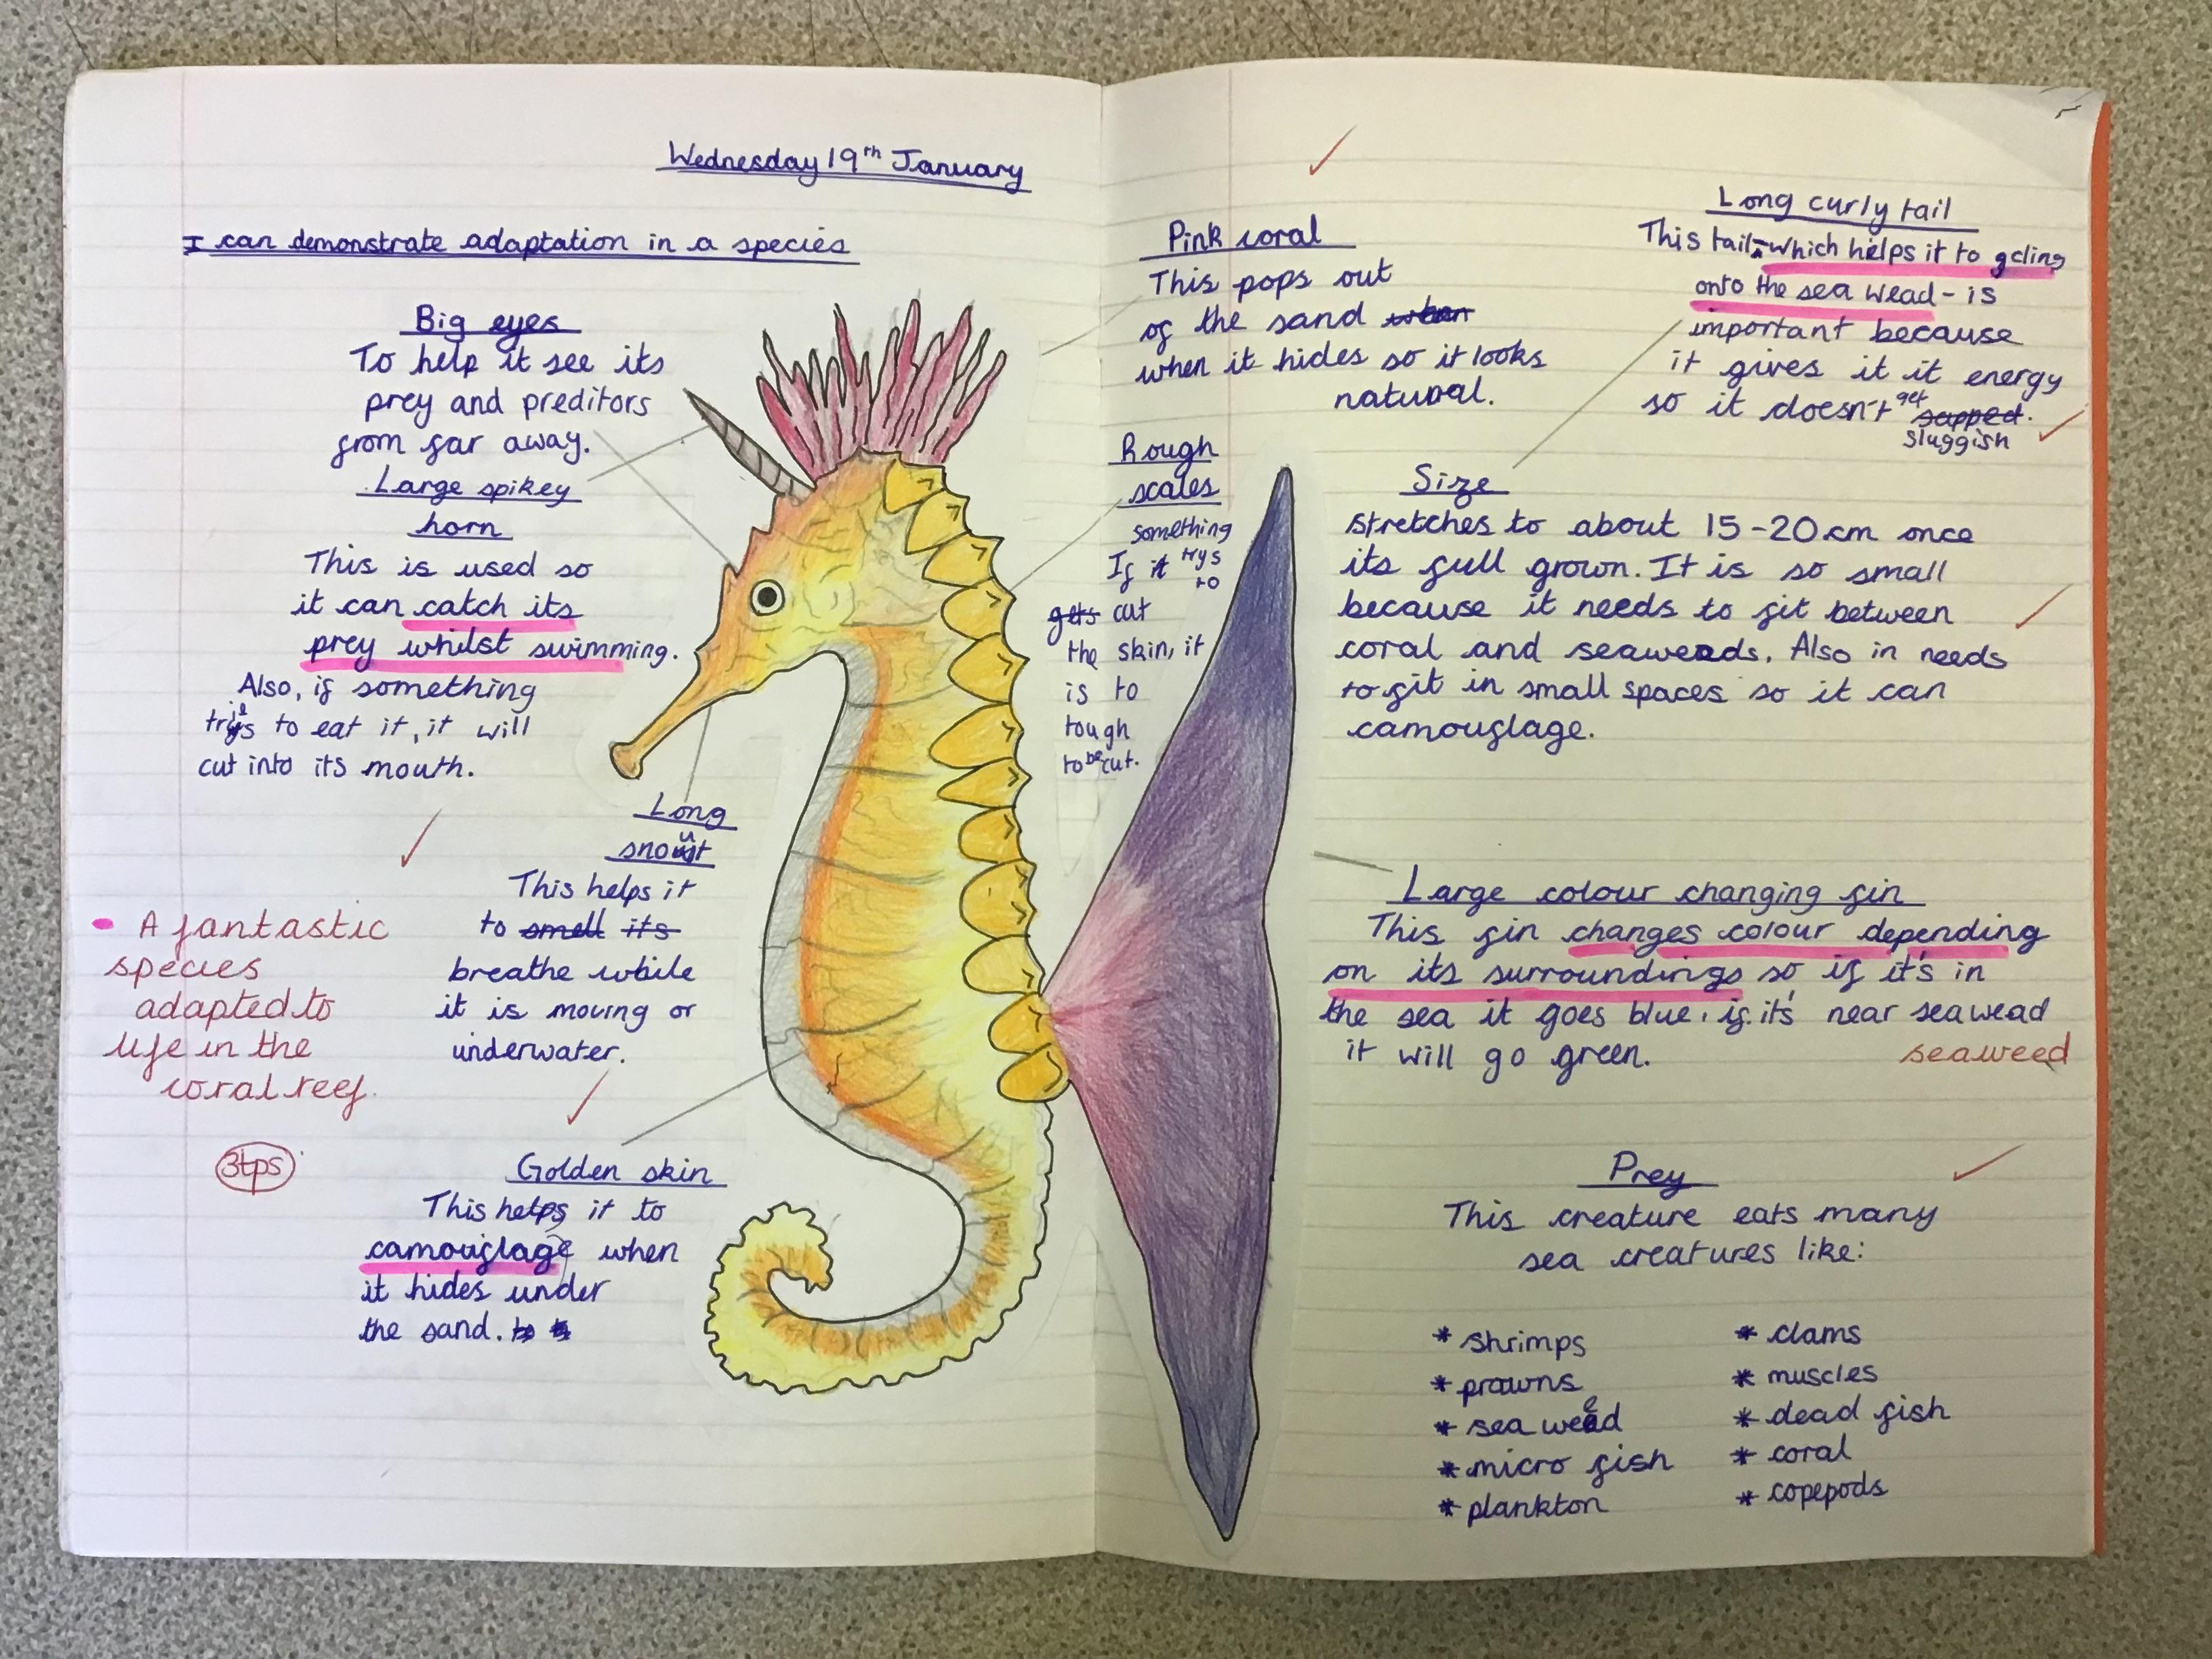 Wednesday 19th January
I can demonstrate adaptation in a species
Big eyes
To help it see its
prey and preditors
from far away.
Large spikey
horn
This is used so
it can catch its
prey whilst swimming.
Also, if something
tries to eat it, it will
cut into its mouth.
Long
snout
This helps it
to smell its
breathe while
it is moving or
underwater.
A fantastic
species
adapted to
life in the
coral reef.
3tps
Golden skin
This helps it to
camouflage when
it hides under
the sand.
Pink coral
This pops out
of the sand when
when it hides so it looks
natural.
Rough
scales
something
If it trys
to
gets cut
the skin, it
is to
tough
to be cut.
Long curly tail
This tail - which helps it to cling
onto the sea wead - is
important because
it gives it it energy
so it doesn't get sapped.
sluggish
Size
stretches to about 15-20cm once
its full grown. It is so small
because it needs to fit between
coral and seaweads. Also in needs
to fit in small spaces so it can
camouflage.
Large colour changing fin
This fin changes colour depending
on its surroundings so if it's in
the sea it goes blue, if it's near sea wead
it will go green.
seaweed
Prey
This creature eats many
sea creatures like:
* shrimps
* prawns
* sea weed
* micro fish
* plankton
* clams
* muscles
* dead fish
* coral
* copepods